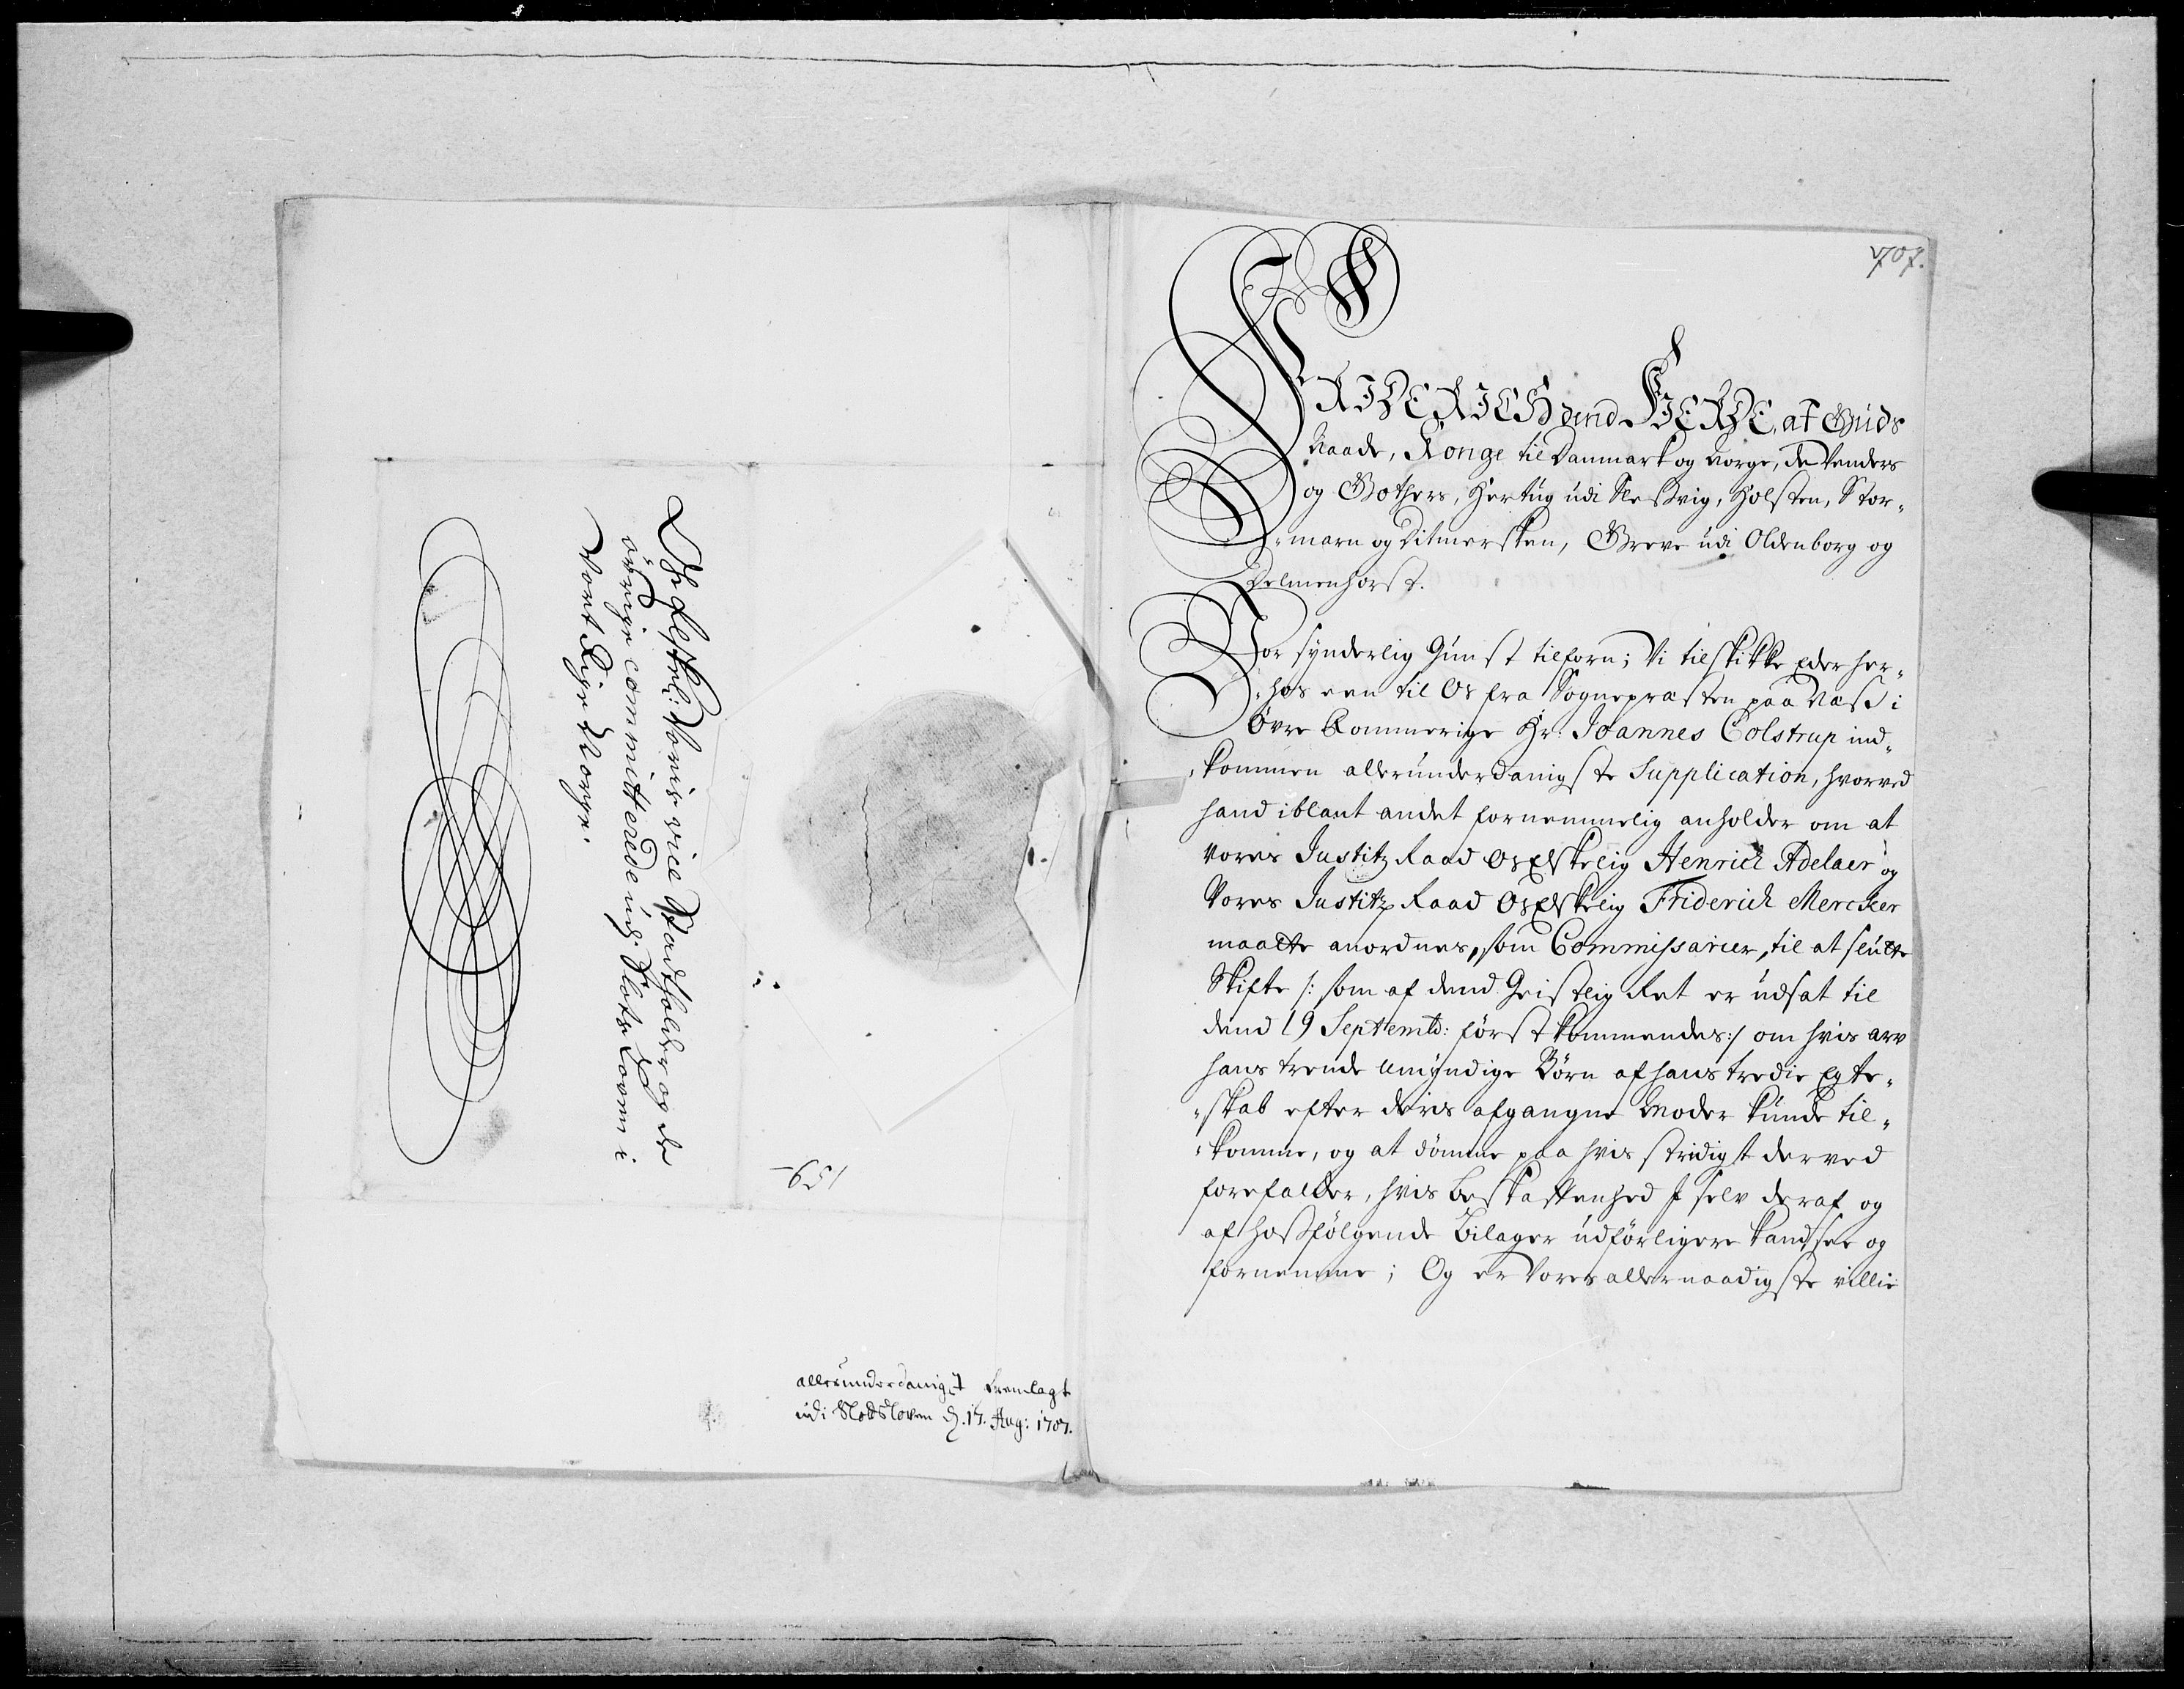 Os Elskel: Voris vice Stadtholder og de
öfrige committerede udj Slots Lovem i
Vort Rige Norge.
159
allerunderdanigst fremlagt
udi Slots Loven d. 17. Aug: 1707.
707.
FRIDERICH dend FIERDE, af Guds
Naade, Konge til Danmark og Norge, de Venders
og Gothers, Hertug udi Slesvig, Holsten, Stor-
-marn og Ditmersken, Greve udi Oldenborg og
Delmenhorst.
Vor synderlig Gunst tilforn; Vi tilskikke Eder her-
-hos een til Os fra Sognepræsten paa Næss i
Övre Rommerige Hr: Joannes Colstrup ind-
-kommen allerunderdanigste Supplication, hvorved
hand iblant andet fornemmelig anholder om at
vores Justitz Raad Os Elskelig Henrich Adelaer og
Vores Justitz Raad Os Elskelig Friderich Mercker
maatte anordnes, som Commissarier, til at slutte
Skifte /: som af dend Geistlig Ret er udsat til
dend 19 Septemb: först kommendes :/ om hvis arv
hans trende umÿndige Börn af hans tredie Egte-
-skab efter deris afgangne Moder kunde til-
-komme, og at dömme paa hvis stridigt derved
forefalder, hvis beskaffenhed I selv deraf og
af hosfölgende Bilager udförligere kand see og
fornemme; Og er Vores allernaadigste villie